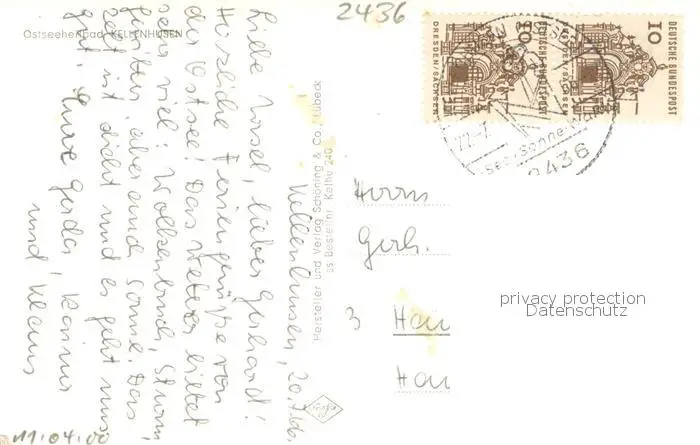 2436
Ostseeheilbad KELLENHUSEN
DEUTSCHE BUNDESPOST
10
DRESDEN/SACHSEN
DEUTSCHE BUNDESPOST
10
DRESDEN/SACHSEN
22.-7.
2436
Kellenhusen, 20.7.66
Liebe Ursel, lieber Gerhard!
Herzliche Feriengrüße von
der Ostsee! Das Wetter bietet
sehr viel: Wolkenbruch, Sturm,
Gewitter, aber auch Sonne. Das
Zelt ist dicht und es geht uns
gut. Eure Gerda, Rainer
und Klaus
Hersteller und Verlag Schöning & Co., Lübeck
Bestellnr. Kelhe 240
Herrn
Gerh.
3 Han
Han
privacy protection
Datenschutz
11.04.00